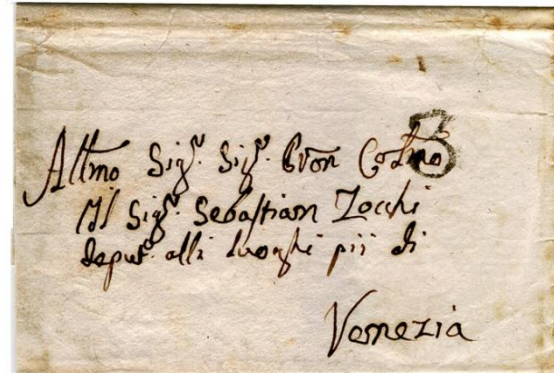 Altmo Sigr. Sigr. Pron Colmo
3
Il Sigr. Sebastian Zocchi
deputo. alli luoghi pii di
Venezia